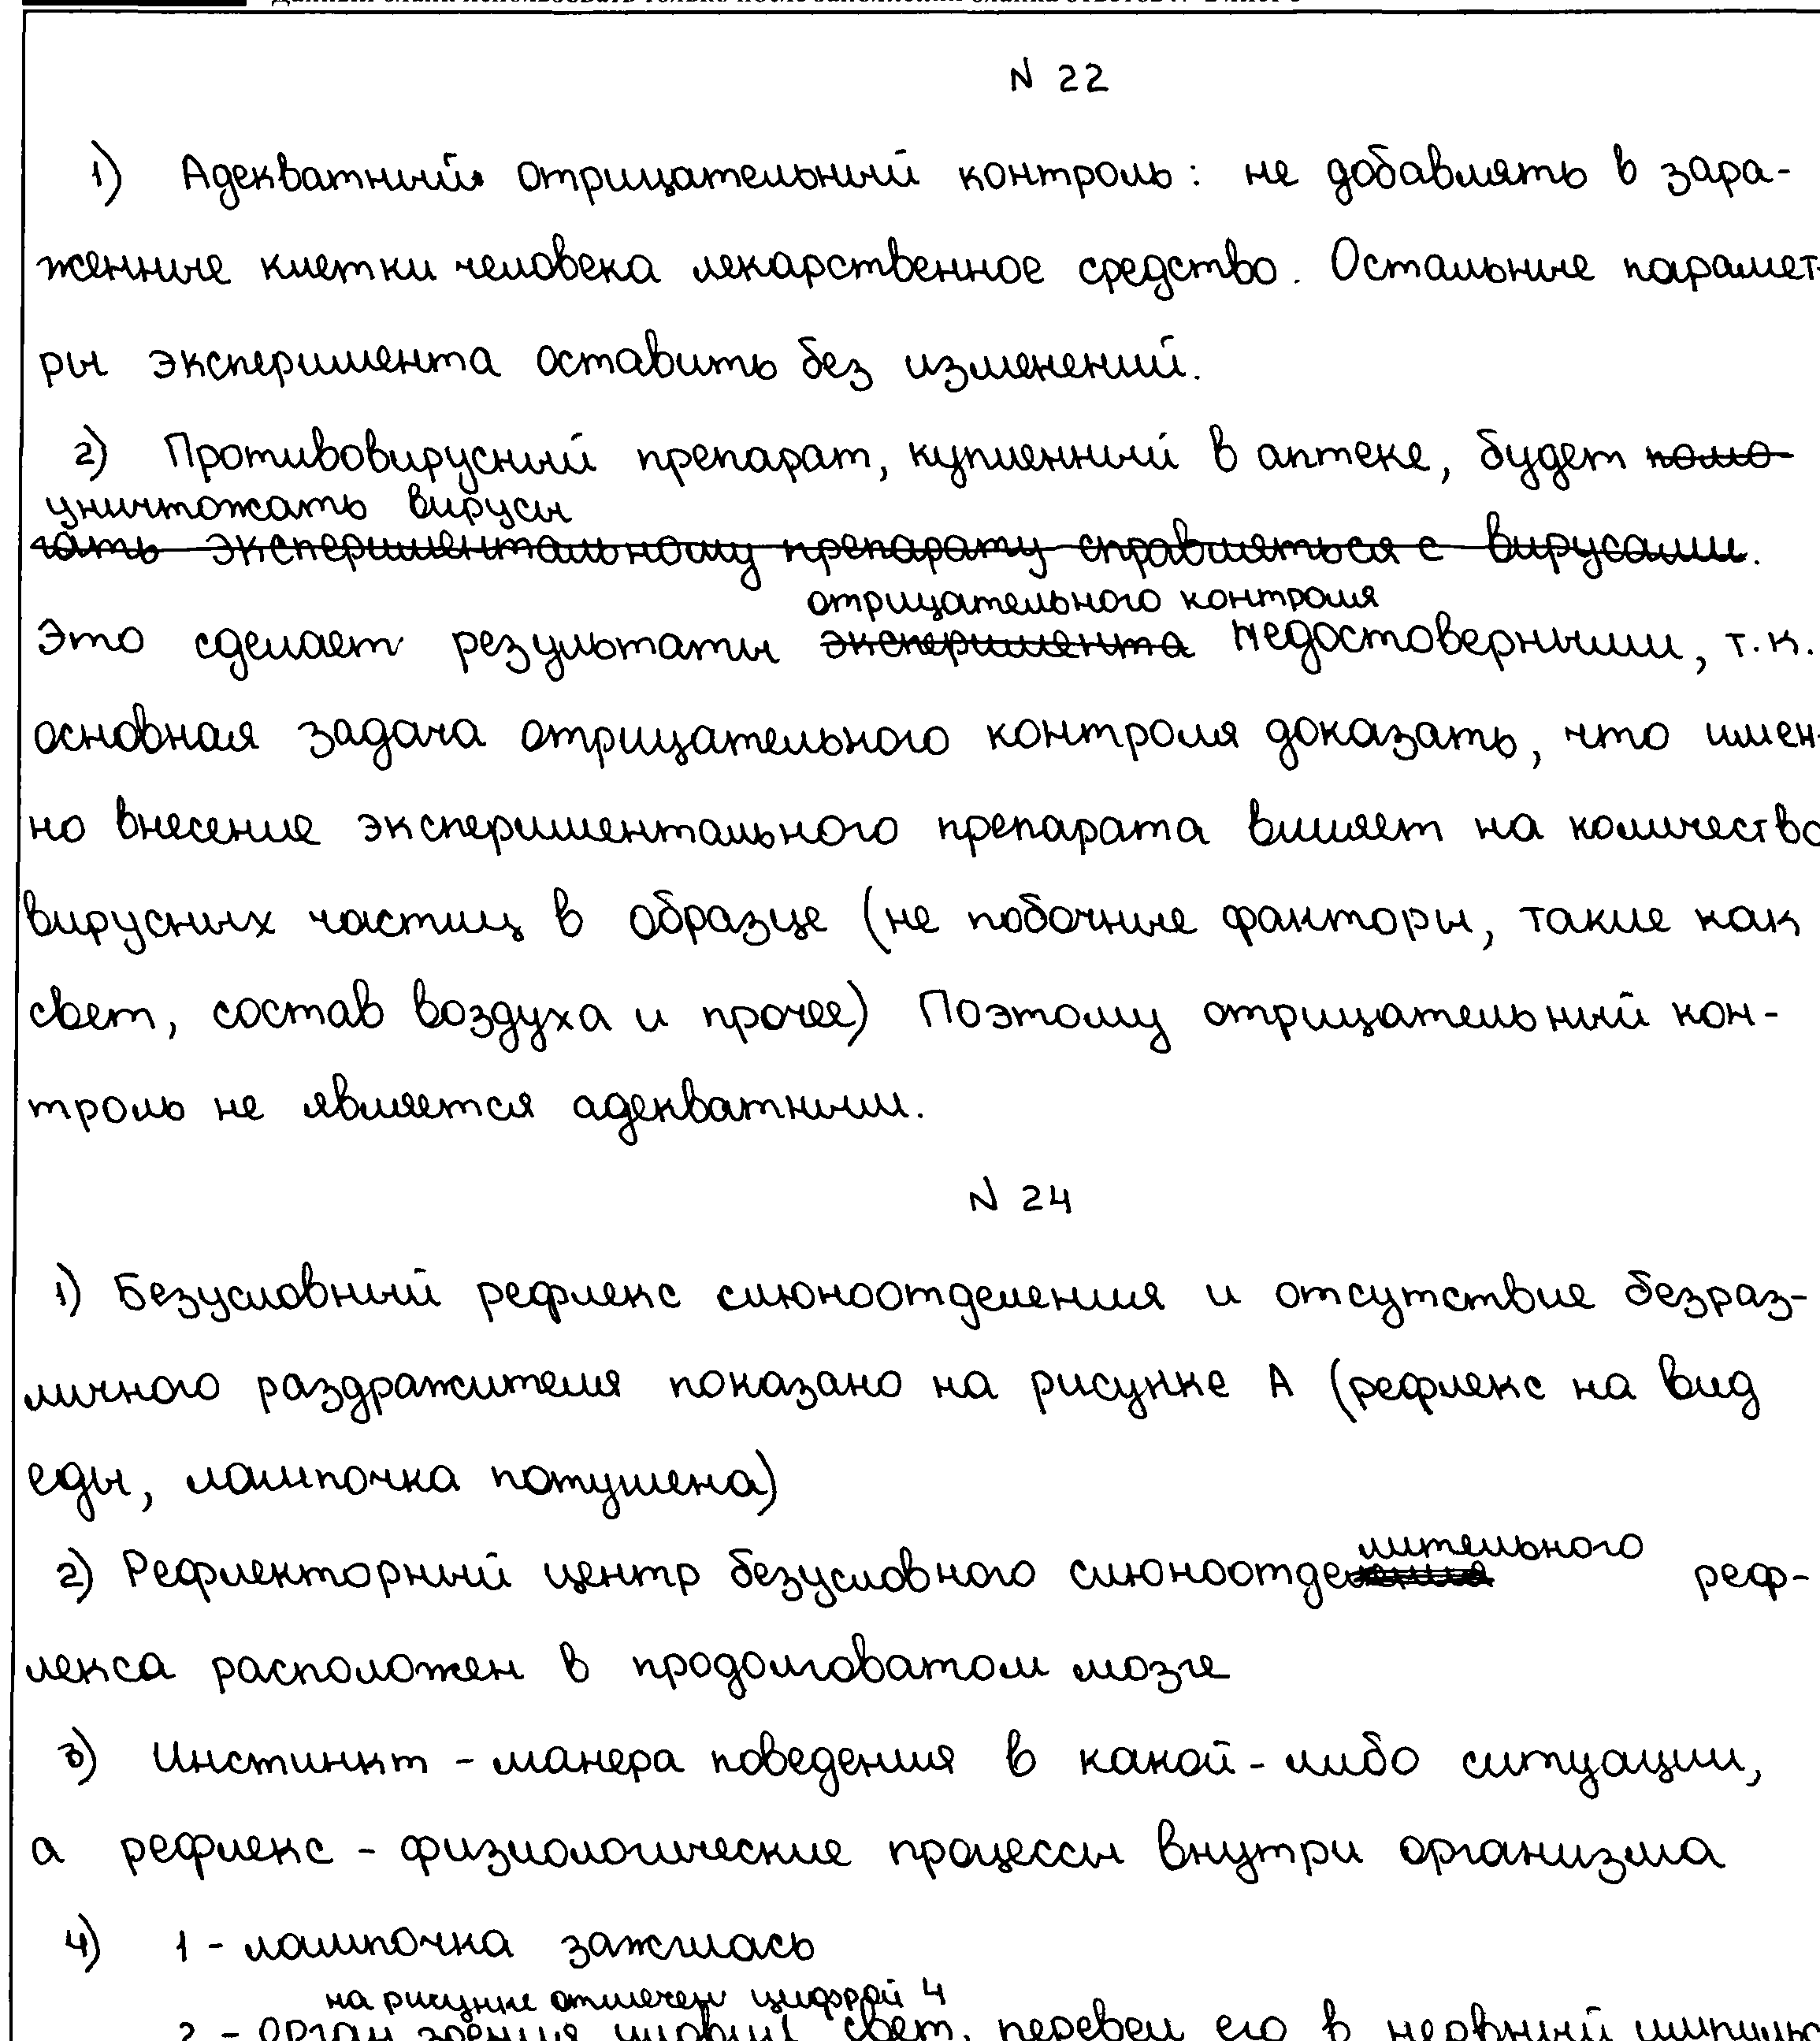 Данный бланк использовать только после заполнения бланка ответов № 2 лист 1
N 22
1) Адекватный отрицательный контроль: не добавлять в зара-
женные клетки человека лекарственное средство. Остальные парамет-
ры эксперимента оставить без изменений.
2) Противовирусный препарат, купленный в аптеке, будет помо-
уничтожать вирусы
гать экспериментальному препарату справляться с вирусами.
отрицательного контроля
Это сделает результаты эксперимента недостоверными, т.к.
основная задача отрицательного контроля доказать, что имен-
но внесение экспериментального препарата влияет на количество
вирусных частиц в образце (не побочные факторы, такие как
свет, состав воздуха и прочее) Поэтому отрицательный кон-
троль не является адекватным.
N 24
1) Безусловный рефлекс слюноотделения и отсутствие безраз-
личного раздражителя показано на рисунке А (рефлекс на вид
еды, лампочка потушена)
лительного
2) Рефлекторный центр безусловного слюноотделения реф-
лекса расположен в продолговатом мозге
3) Инстинкт - манера поведения в какой-либо ситуации,
а рефлекс - физиологические процессы внутри организма
4) 1 - лампочка зажглась
на рисунке отмечен цифрой 4
2 - орган зрения уловил свет, перевел его в нервный импульс